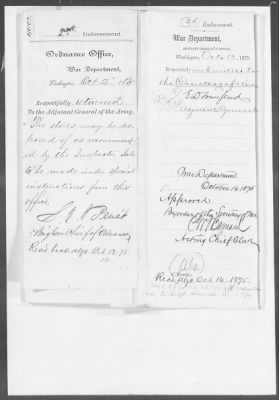 2nd Indorsement.
Ordnance Office,
War Department,
Washington, Oct 12" 1875
Respectfully returned
To the Adjutant General of the Army.
The stores may be dis-
posed of as recommen-
ded by the Inspector Sale
to be made under special
instructions from this
office.
S. V. Benét
Brig Gen Chief of Ordnance
Recd. back A.G.O. Oct 13. 75
3d Indorsement.
War Department,
ADJUTANT GENERAL'S OFFICE,
Washington, Oct. 14, 1875.
Respectfully submitted to
the Secretary of War
E. D. Townsend
Adjutant General
War Department
October 16 1875
Approved
By order of the Secretary of War
Acting Chief Clerk
Recd. back A.G.O. Oct. 16. 1875.